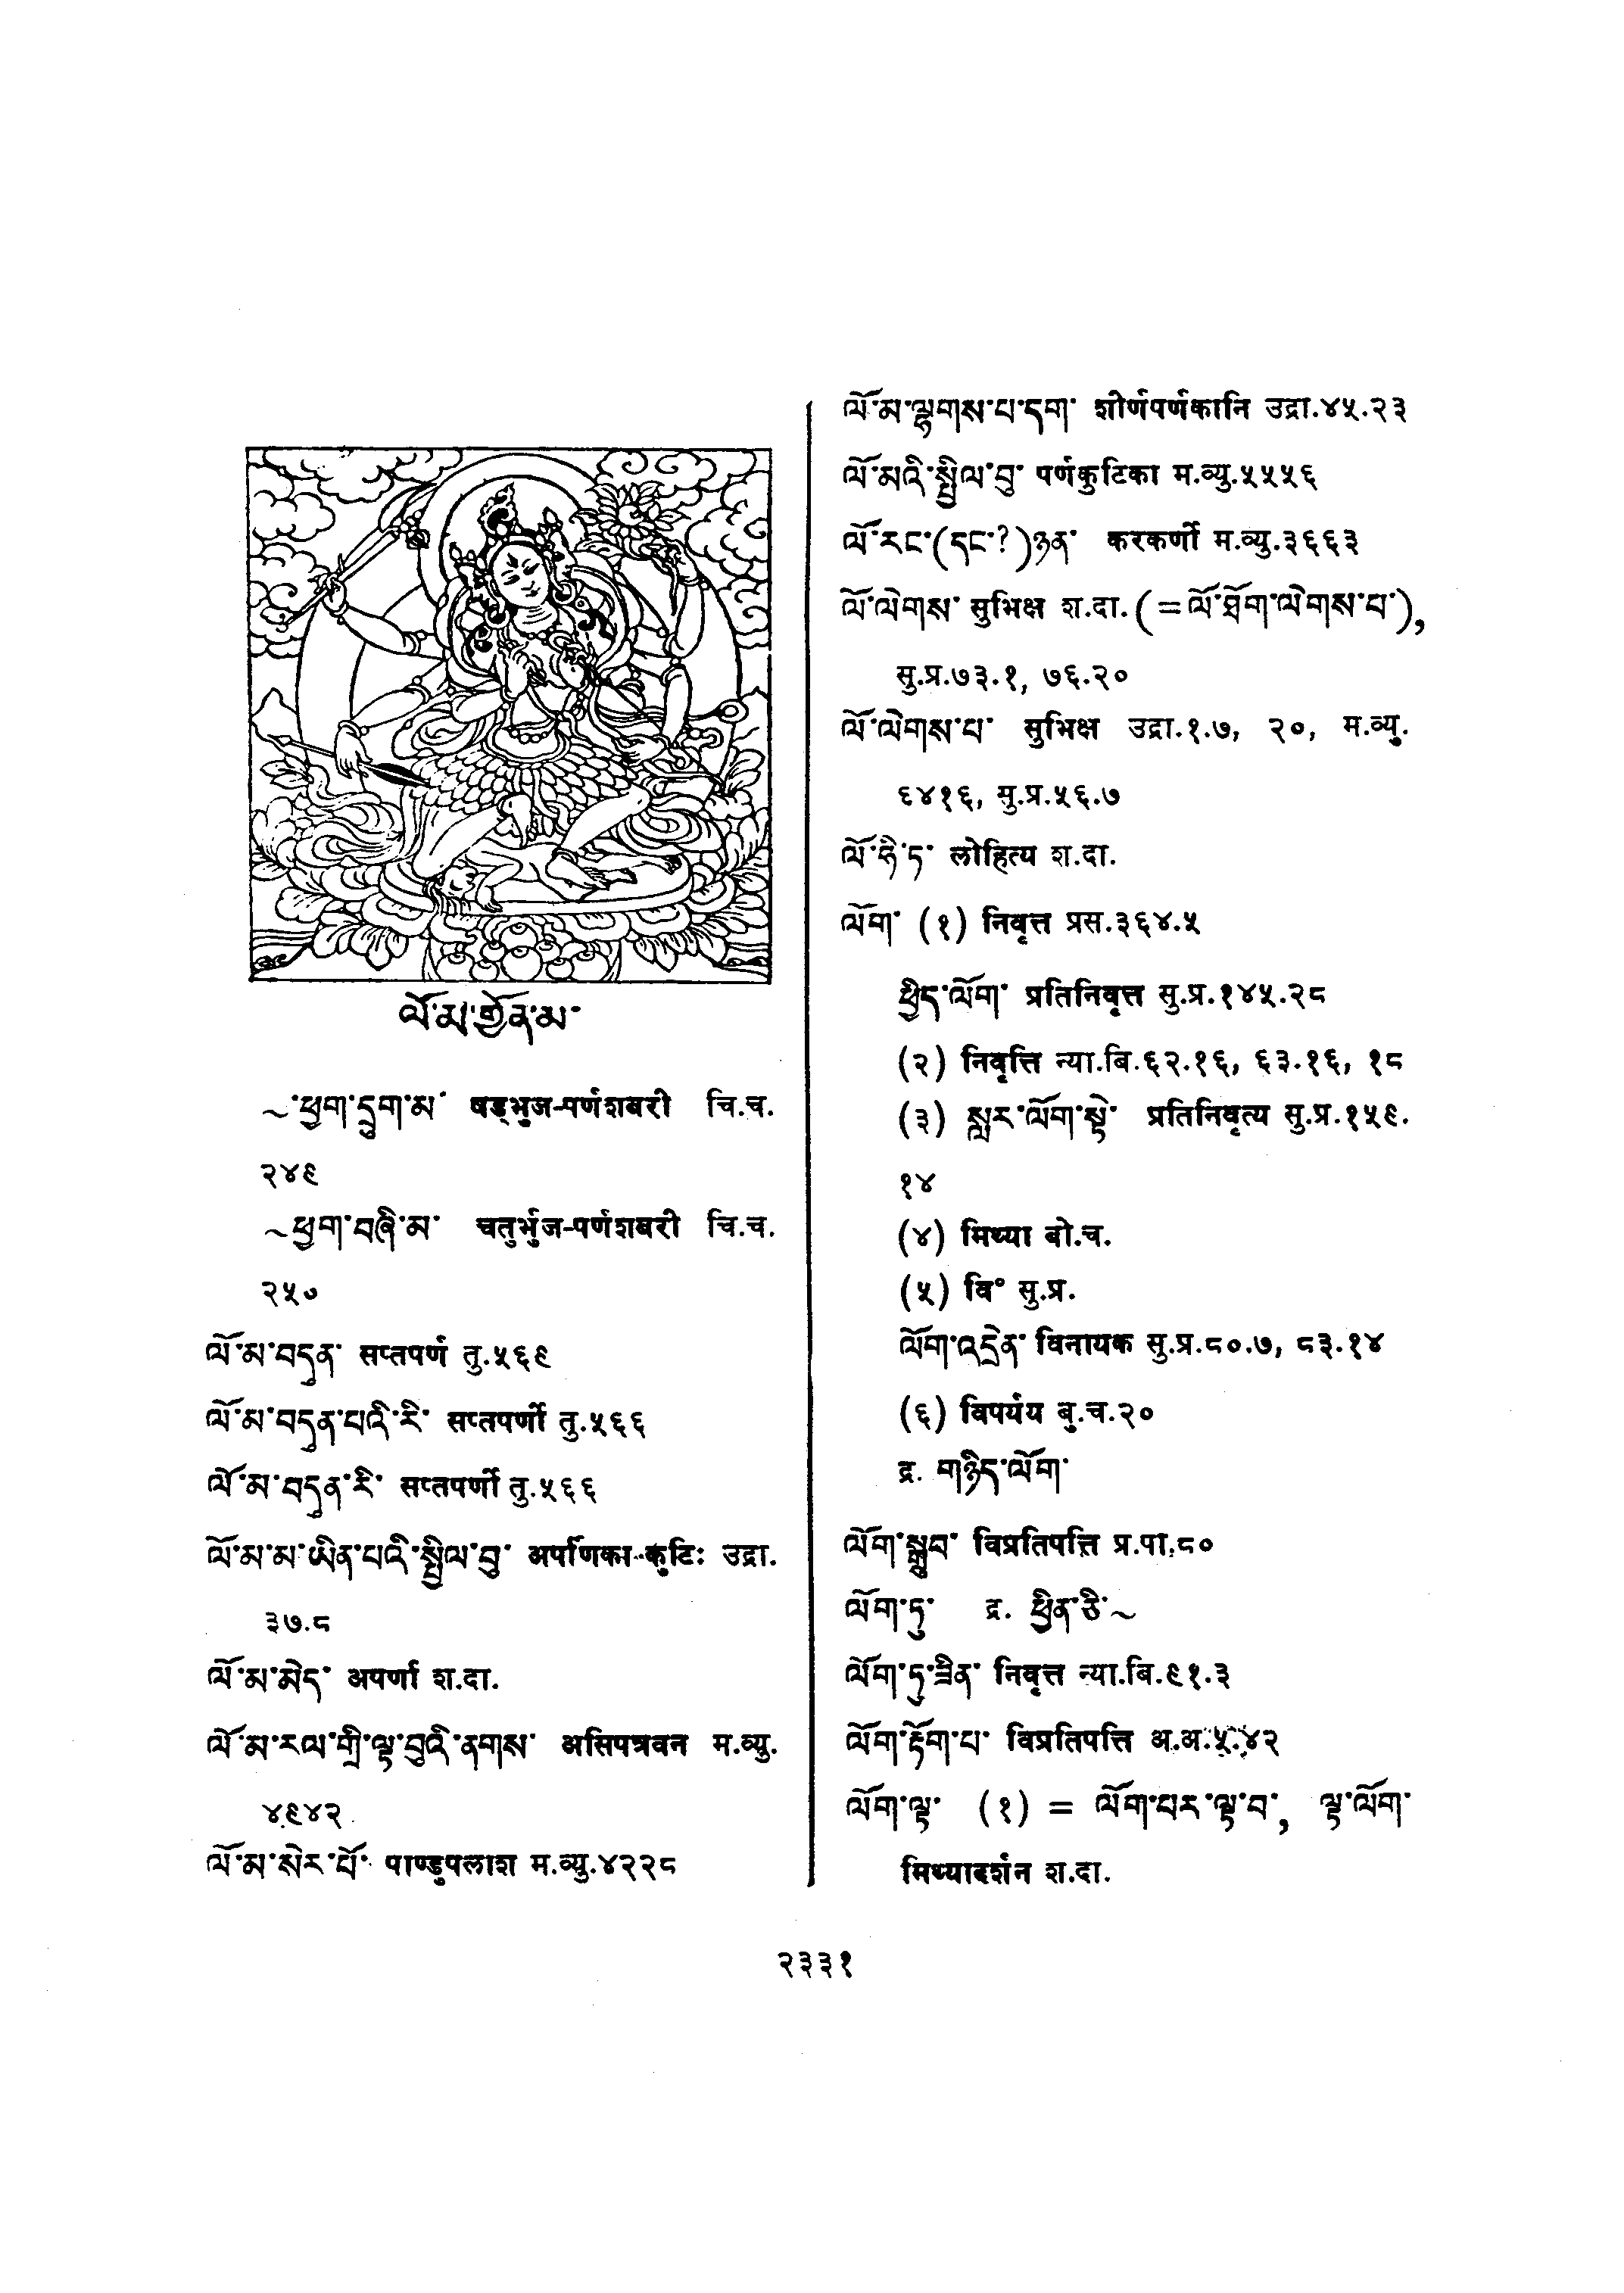 ལོ་མ་གྱོན་མ་
~་ཕྱག་དྲུག་མ་ षड्भुज-पर्णशबरी चि.च.
२४९
~ཕྱག་བཞི་མ་ चतुर्भुज-पर्णशबरी चि.च.
२५०
ལོ་མ་བདུན་ सप्तपर्ण तु.५६९
ལོ་མ་བདུན་པའི་རི་ सप्तपर्णी तु.५६६
ལོ་མ་བདུན་རི་ सप्तपर्णी तु.५६६
ལོ་མ་མ་ཡིན་པའི་སྤྱིལ་བུ་ अपर्णिका-कुटिः उद्रा.
३७.८
ལོ་མ་མེད་ अपर्णा श.दा.
ལོ་མ་རལ་གྲི་ལྟ་བུའི་ནགས་ असिपत्रवन म.व्यु.
४९४२
ལོ་མ་སེར་པོ་ पाण्डुपलाश म.व्यु.४२२८
ལོ་མ་ལྷགས་པ་དག་ शीर्णपर्णकानि उद्रा.४५.२३
ལོ་མའི་སྤྱིལ་བུ་ पर्णकुटिका म.व्यु.५५५६
ལོ་རང་(དང་?)ཉན་ करकर्णी म.व्यु.३६६३
ལོ་ལེགས་ सुभिक्ष श.दा.(=ལོ་ཐོག་ལེགས་པ་),
सु.प्र.७३.१, ७६.२०
ལོ་ལེགས་པ་ सुभिक्ष उद्रा.१.७, २०, म.व्यु.
६४१६, सु.प्र.५६.७
ལོ་ཧི་ད་ लोहित्य श.दा.
ལོག་ (१) निवृत्त प्रस.३६४.५
ཕྱིད་ལོག་ प्रतिनिवृत्त सु.प्र.१४५.२८
(२) निवृत्ति न्या.बि.६२.१६, ६३.१६, १८
(३) སླར་ལོག་སྟེ་ प्रतिनिवृत्य सु.प्र.१५९.
१४
(४) मिथ्या बो.च.
(५) वि° सु.प्र.
ལོག་འདྲེན་ विनायक सु.प्र.८०.७, ८३.१४
(६) विपर्यय बु.च.२०
द्र. གཉིད་ལོག་
ལོག་སྒྲུབ་ विप्रतिपत्ति प्र.पा.८०
ལོག་ཏུ་ द्र. ཕྱིན་ཅི་~
ལོག་ཏུ་ཟིན་ निवृत्त न्या.बि.९१.३
ལོག་རྟོག་པ་ विप्रतिपत्ति अ.अ.५.४२
ལོག་ལྟ་ (१) = ལོག་པར་ལྟ་བ་, ལྟ་ལོག་
मिथ्यादर्शन श.दा.
२३३१